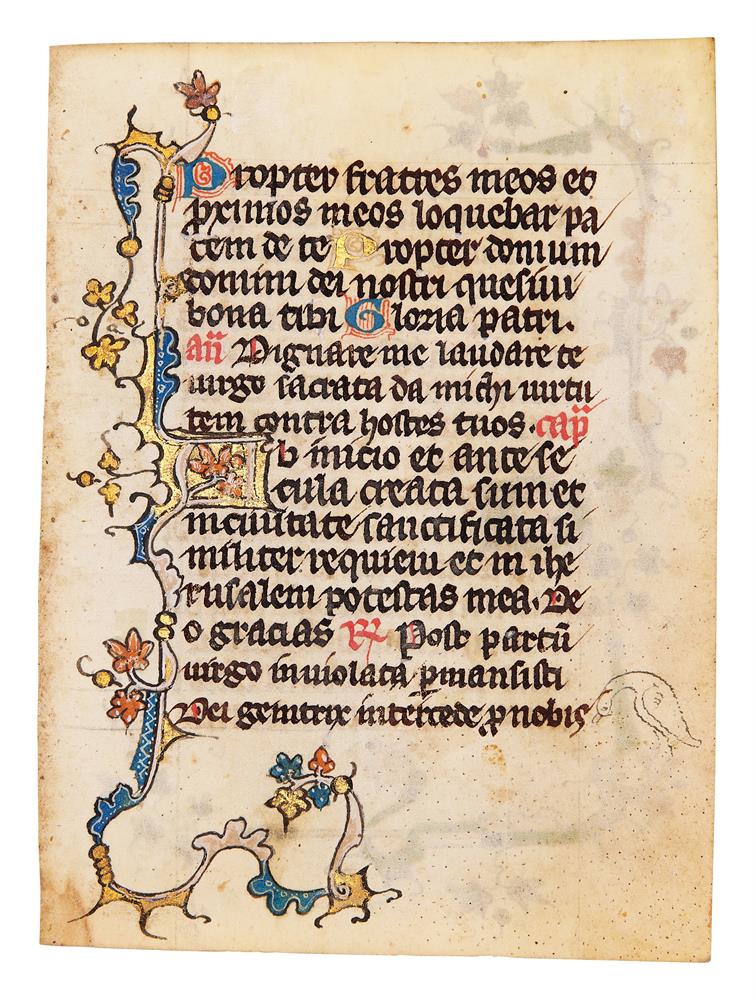 Propter fratres meos et
pximos meos loquebar pa
cem de te Propter domum
domini dei nostri quesiui
bona tibi Gloria patri.
añ Dignare me laudare te
uirgo sacrata da michi uirtu
tem contra hostes tuos. cap̃
Ab inicio et ante se
cula creata sum et
in ciuitate sanctificata si
militer requieui et in ihe
rusalem potestas mea. De
o gracias R Post partũ
uirgo inuiolata pmansisti
Dei genitrix intercede p nobis